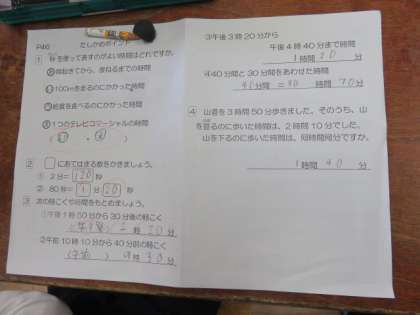 P46 たしかめポイント
1 秒を使って表すのがよい時間はどれですか。
朝起きてから、夜ねるまでの時間
100mを走るのにかかった時間
給食を食べるのにかかった時間
1つのテレビコマーシャルの時間
2 □にあてはまる数をかきましょう。
① 2分=120秒
② 80秒=1分20秒
3 次の時こくや時間をもとめましょう。
①午後1時50分から30分後の時こく
時20分
②午前10時10分から40分前の時こく
(午前) 9時30分
③午後3時20分から
午後4時40分まで時間
1時間20分
④40分間と30分間をあわせた時間
70分
4 山道を3時間50分歩きました。そのうち、山
を登るのに歩いた時間は、2時間10分でした。
山を下るのに歩いた時間は、何時間何分ですか。
1時間40分